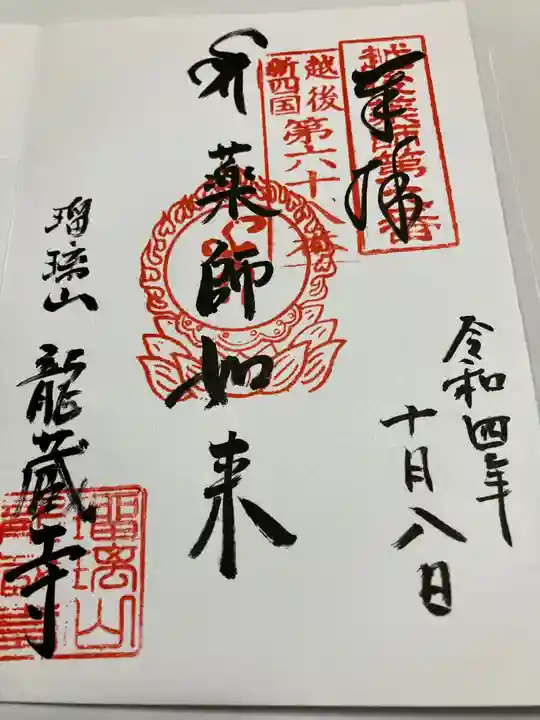 奉拝
越後薬師第五番
令和四年
十月八日
越後
新四国
第六十八番
薬師如来
瑠璃山
龍蔵寺
瑠璃山
龍蔵寺